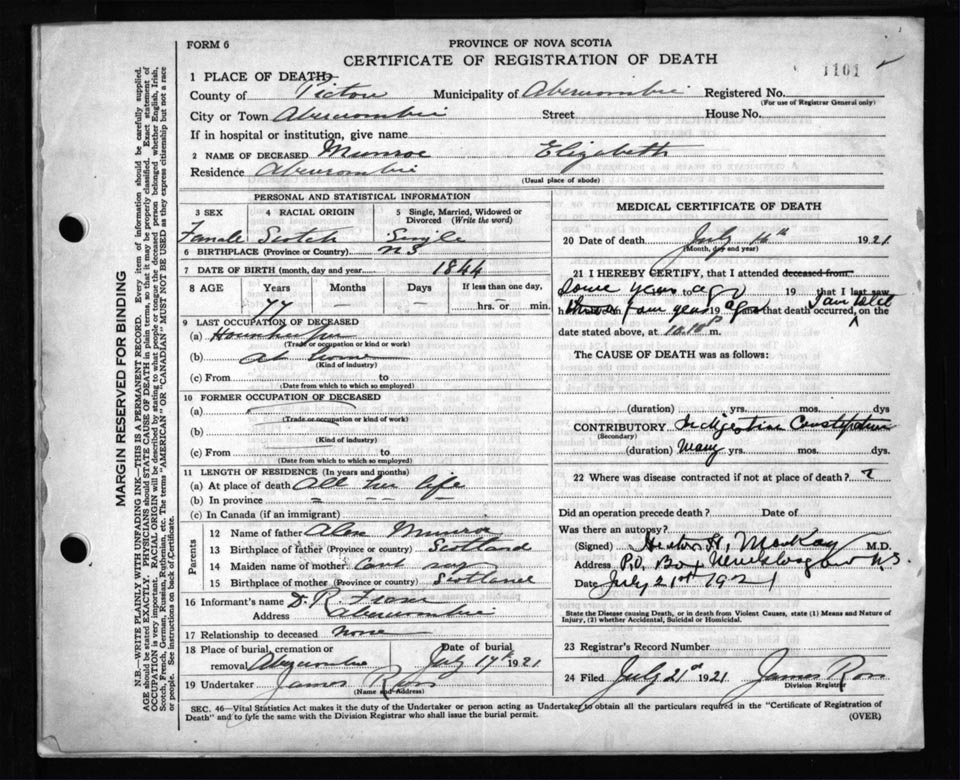 FORM 6
PROVINCE OF NOVA SCOTIA
CERTIFICATE OF REGISTRATION OF DEATH
1101
1 PLACE OF DEATH
County of Pictou Municipality of Abercrombie Registered No.
(For use of Registrar General only)
City or Town Abercrombie Street House No.
If in hospital or institution, give name
2 NAME OF DECEASED Munroe Elizabeth
Residence Abercrombie
(Usual place of abode)
PERSONAL AND STATISTICAL INFORMATION
3 SEX 4 RACIAL ORIGIN 5 Single, Married, Widowed or Divorced (Write the word)
Female Scotch Single
6 BIRTHPLACE (Province or Country) NS
7 DATE OF BIRTH (month, day and year) 1844
8 AGE Years Months Days If less than one day,
77 — — hrs. or min.
9 LAST OCCUPATION OF DECEASED
(a) Housekeeper
(Trade or occupation or kind or work)
(b) At home
(Kind of industry)
(c) From to
(Date from which to which so employed)
10 FORMER OCCUPATION OF DECEASED
(a)
(Trade or occupation or kind of work)
(b)
(Kind of industry)
(c) From to
(Date from which to which so employed)
11 LENGTH OF RESIDENCE (In years and months)
(a) At place of death All her life
(b) In province
(c) In Canada (if an immigrant)
Parents
12 Name of father Alex Munroe
13 Birthplace of father (Province or country) Scotland
14 Maiden name of mother Cant say
15 Birthplace of mother (Province or country) Scotland
16 Informant's name D. R. Fraser
Address Abercrombie
17 Relationship to deceased None
18 Place of burial, cremation or removal Abercrombie Date of burial July 17th 1921
19 Undertaker James Ross
(Name and Address)
MEDICAL CERTIFICATE OF DEATH
20 Date of death July 16th 1921
(Month, day and year)
21 I HEREBY CERTIFY, that I attended deceased from
some years to ago 19 that I last saw
h three or four years 19 ago and that death occurred, I am told on the
date stated above, at 10.10 P m.
The CAUSE OF DEATH was as follows:
(duration) yrs. mos. dys
CONTRIBUTORY Indigestion Constipation
(Secondary)
(duration) Many yrs. mos. dys.
22 Where was disease contracted if not at place of death? ?
Did an operation precede death? Date of
Was there an autopsy?
(Signed) H. MacKay M.D.
Address P.O. Box New Glasgow N.S.
Date July 21st 1921
State the Disease causing Death, or in death from Violent Causes, state (1) Means and Nature of Injury, (2) whether Accidental, Suicidal or Homicidal.
23 Registrar's Record Number
24 Filed July 21st 1921 James Ross
Division Registrar
SEC. 46—Vital Statistics Act makes it the duty of the Undertaker or person acting as Undertaker to obtain all the particulars required in the "Certificate of Registration of
Death" and to fyle the same with the Division Registrar who shall issue the burial permit.
(OVER)
MARGIN RESERVED FOR BINDING
N.B.—WRITE PLAINLY WITH UNFADING INK—THIS IS A PERMANENT RECORD. Every item of information should be carefully supplied.
AGE should be stated EXACTLY. PHYSICIANS should STATE CAUSE OF DEATH in plain terms, so that it may be properly classified. Exact statement of
OCCUPATION is very important. RACIAL ORIGIN will be described by stating to what people or tongue the deceased person belonged whether English, Irish,
Scotch, French, German, Russian, Ruthenian, etc. The terms "AMERICAN" OR "CANADIAN" MUST NOT BE USED as they express citizenship but not a race
or people. See instructions on back of Certificate.